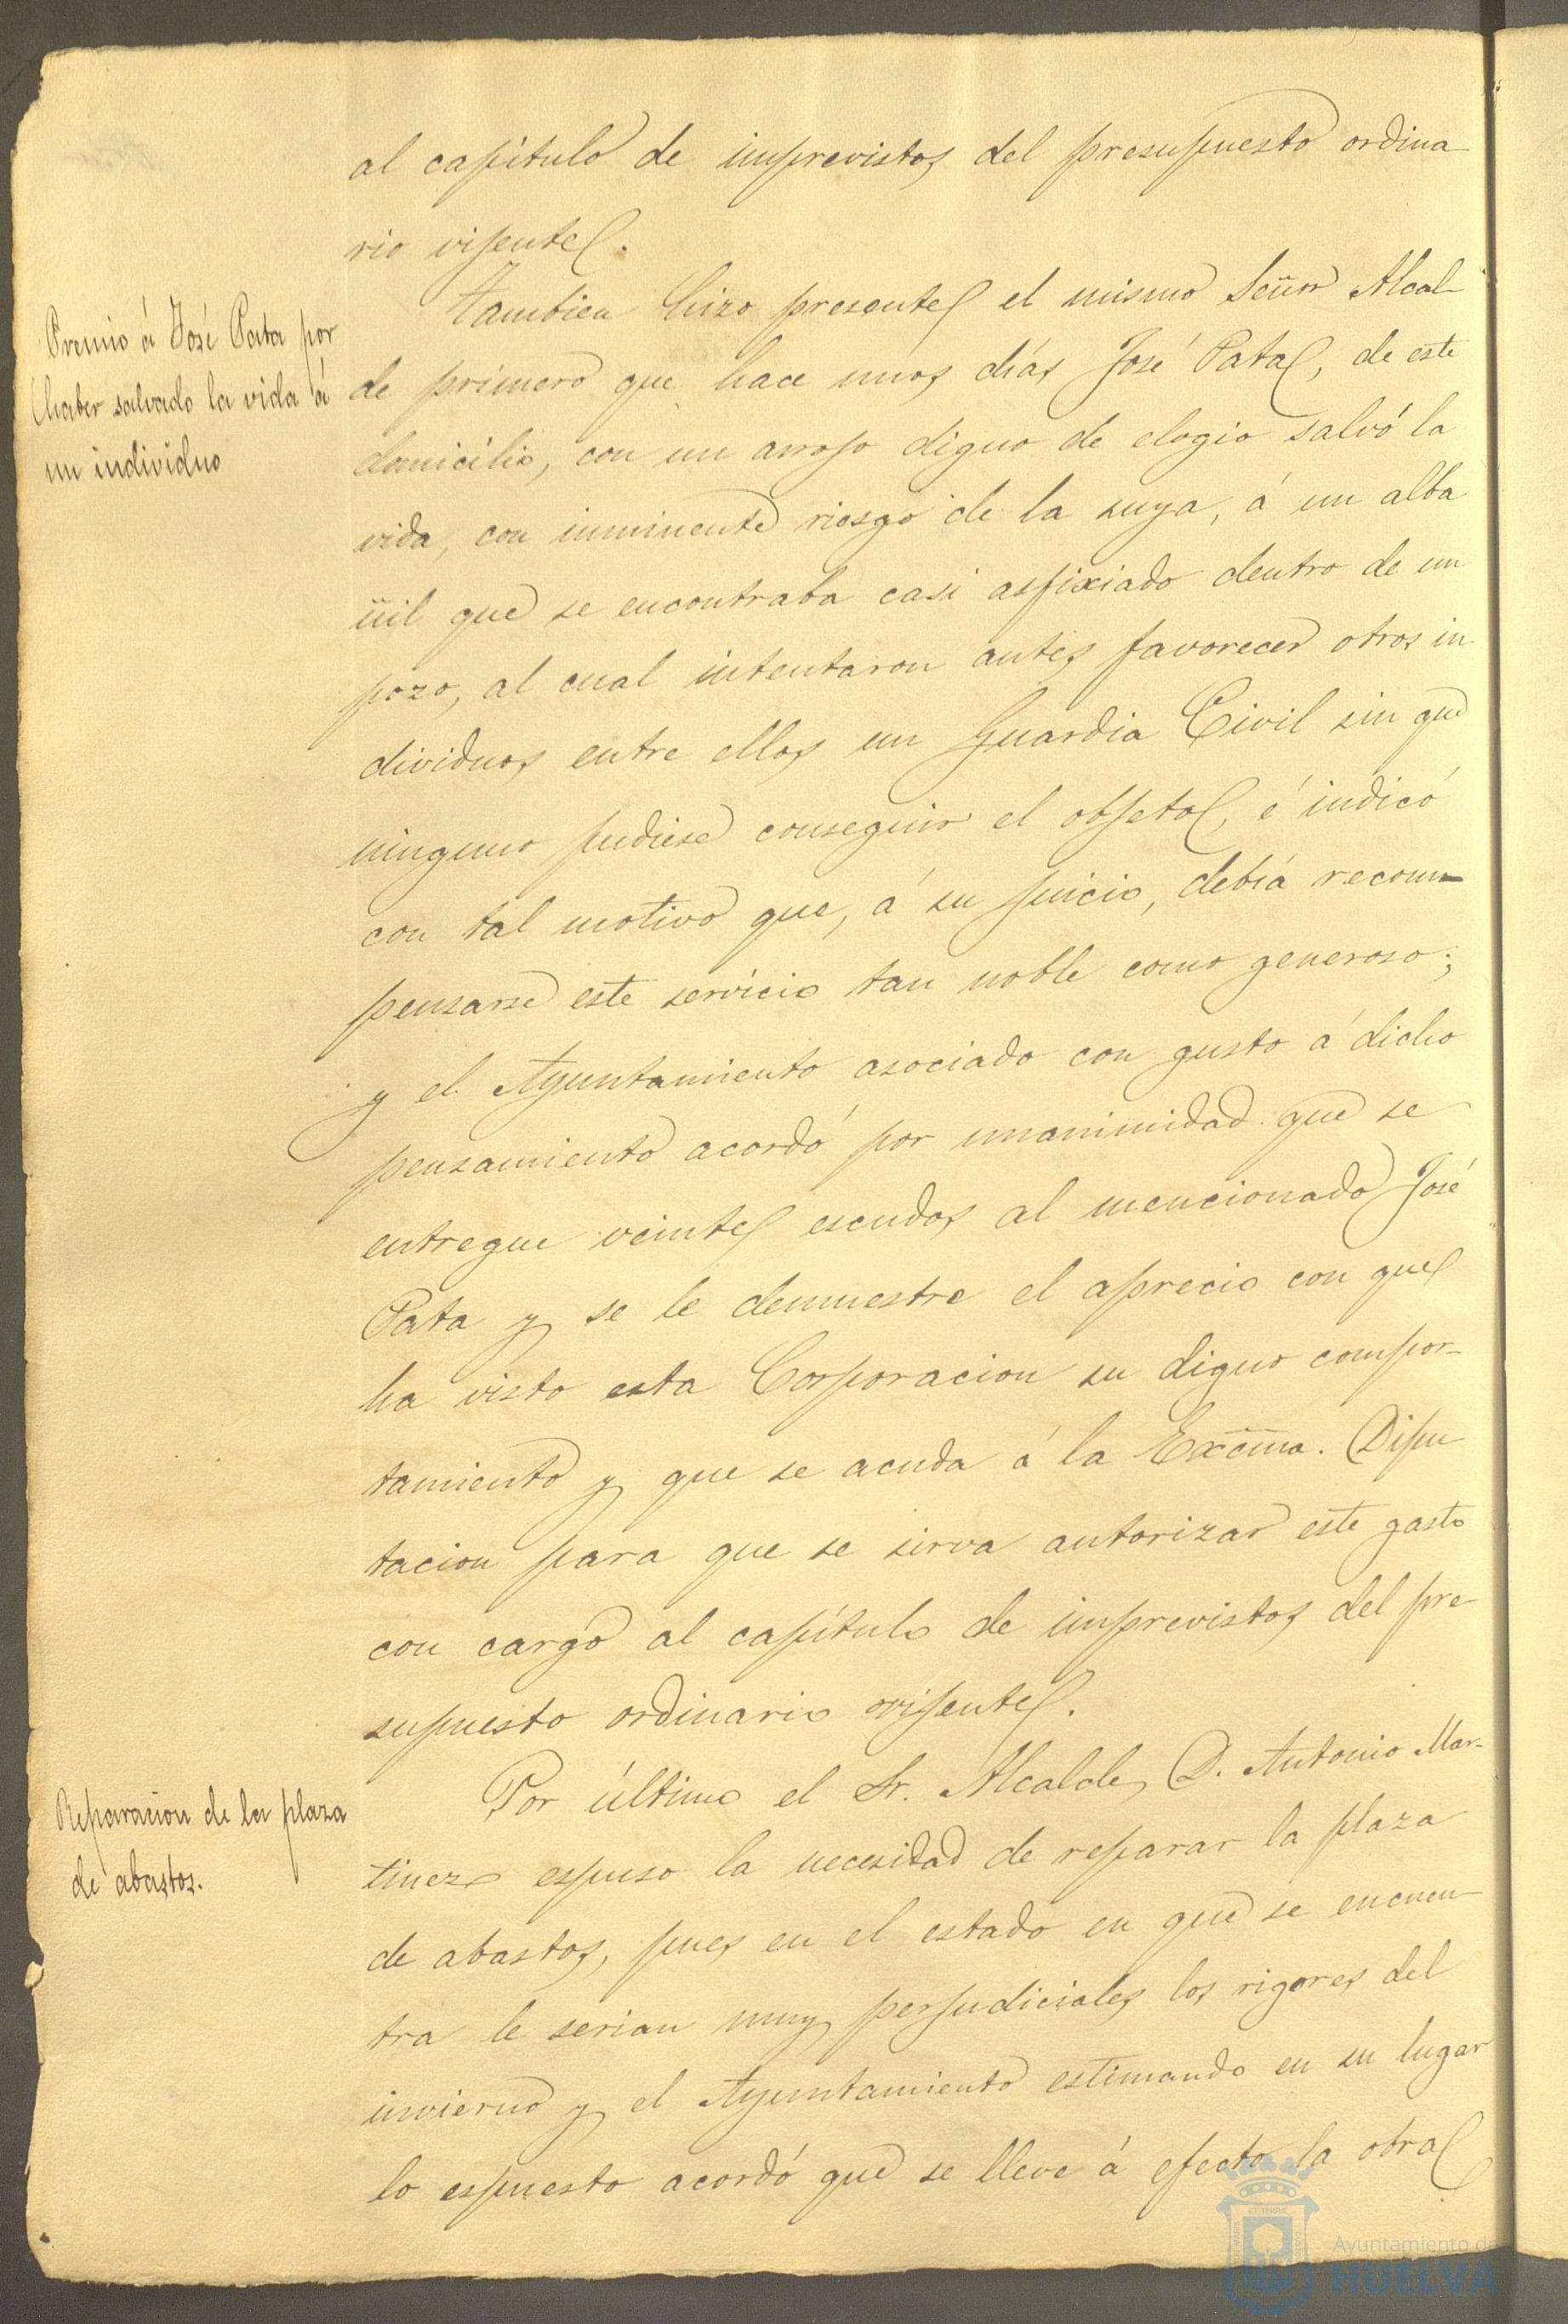 al capitulo de imprevistos del presupuesto ordina
rio vijente.
Tambien hizo presente el mismo Señor Alcal-
de primero que hace unos días José Pata, de este
domicilio, con un arrojo digno de elogio salvó la
vida, con inminente riesgo de la suya, á un alba
ñil que se encontraba casi asfixiado dentro de un
pozo, al cual intentaron antes favorecer otros in
dividuos entre ellos un Guardia Civil sin que
ninguno pudiese conseguir el objeto, é indicó
con tal motivo que, á su juicio, debiá recom-
pensarse este servicio tan noble como generoso;
y el Ayuntamiento asociado con gusto á dicho
pensamiento acordó por unanimidad que se
entregue veinte escudos al mencionado José
Pata y se le demuestre el aprecio con que
ha visto esta Corporacion su digno compor-
tamiento y que se acuda á la Excma. Dipu
tacion para que se sirva autorizar este gasto
con cargo al capítulo de imprevistos del pre
supuesto ordinario vijente.
Por último el Sr. Alcalde, D. Antonio Mar-
tinez espuso la necesidad de reparar la plaza
de abastos, pues en el estado en que se encuen-
tra le serian muy perjudiciales los rigores del
invierno y el Ayuntamiento estimando en su lugar
lo espuesto acordó que se lleve á efecto la obra
Premio á José Pata por
haber salvado la vida á
un individuo
Reparacion de la plaza
de abastos.
Ayuntamiento de
HUELVA